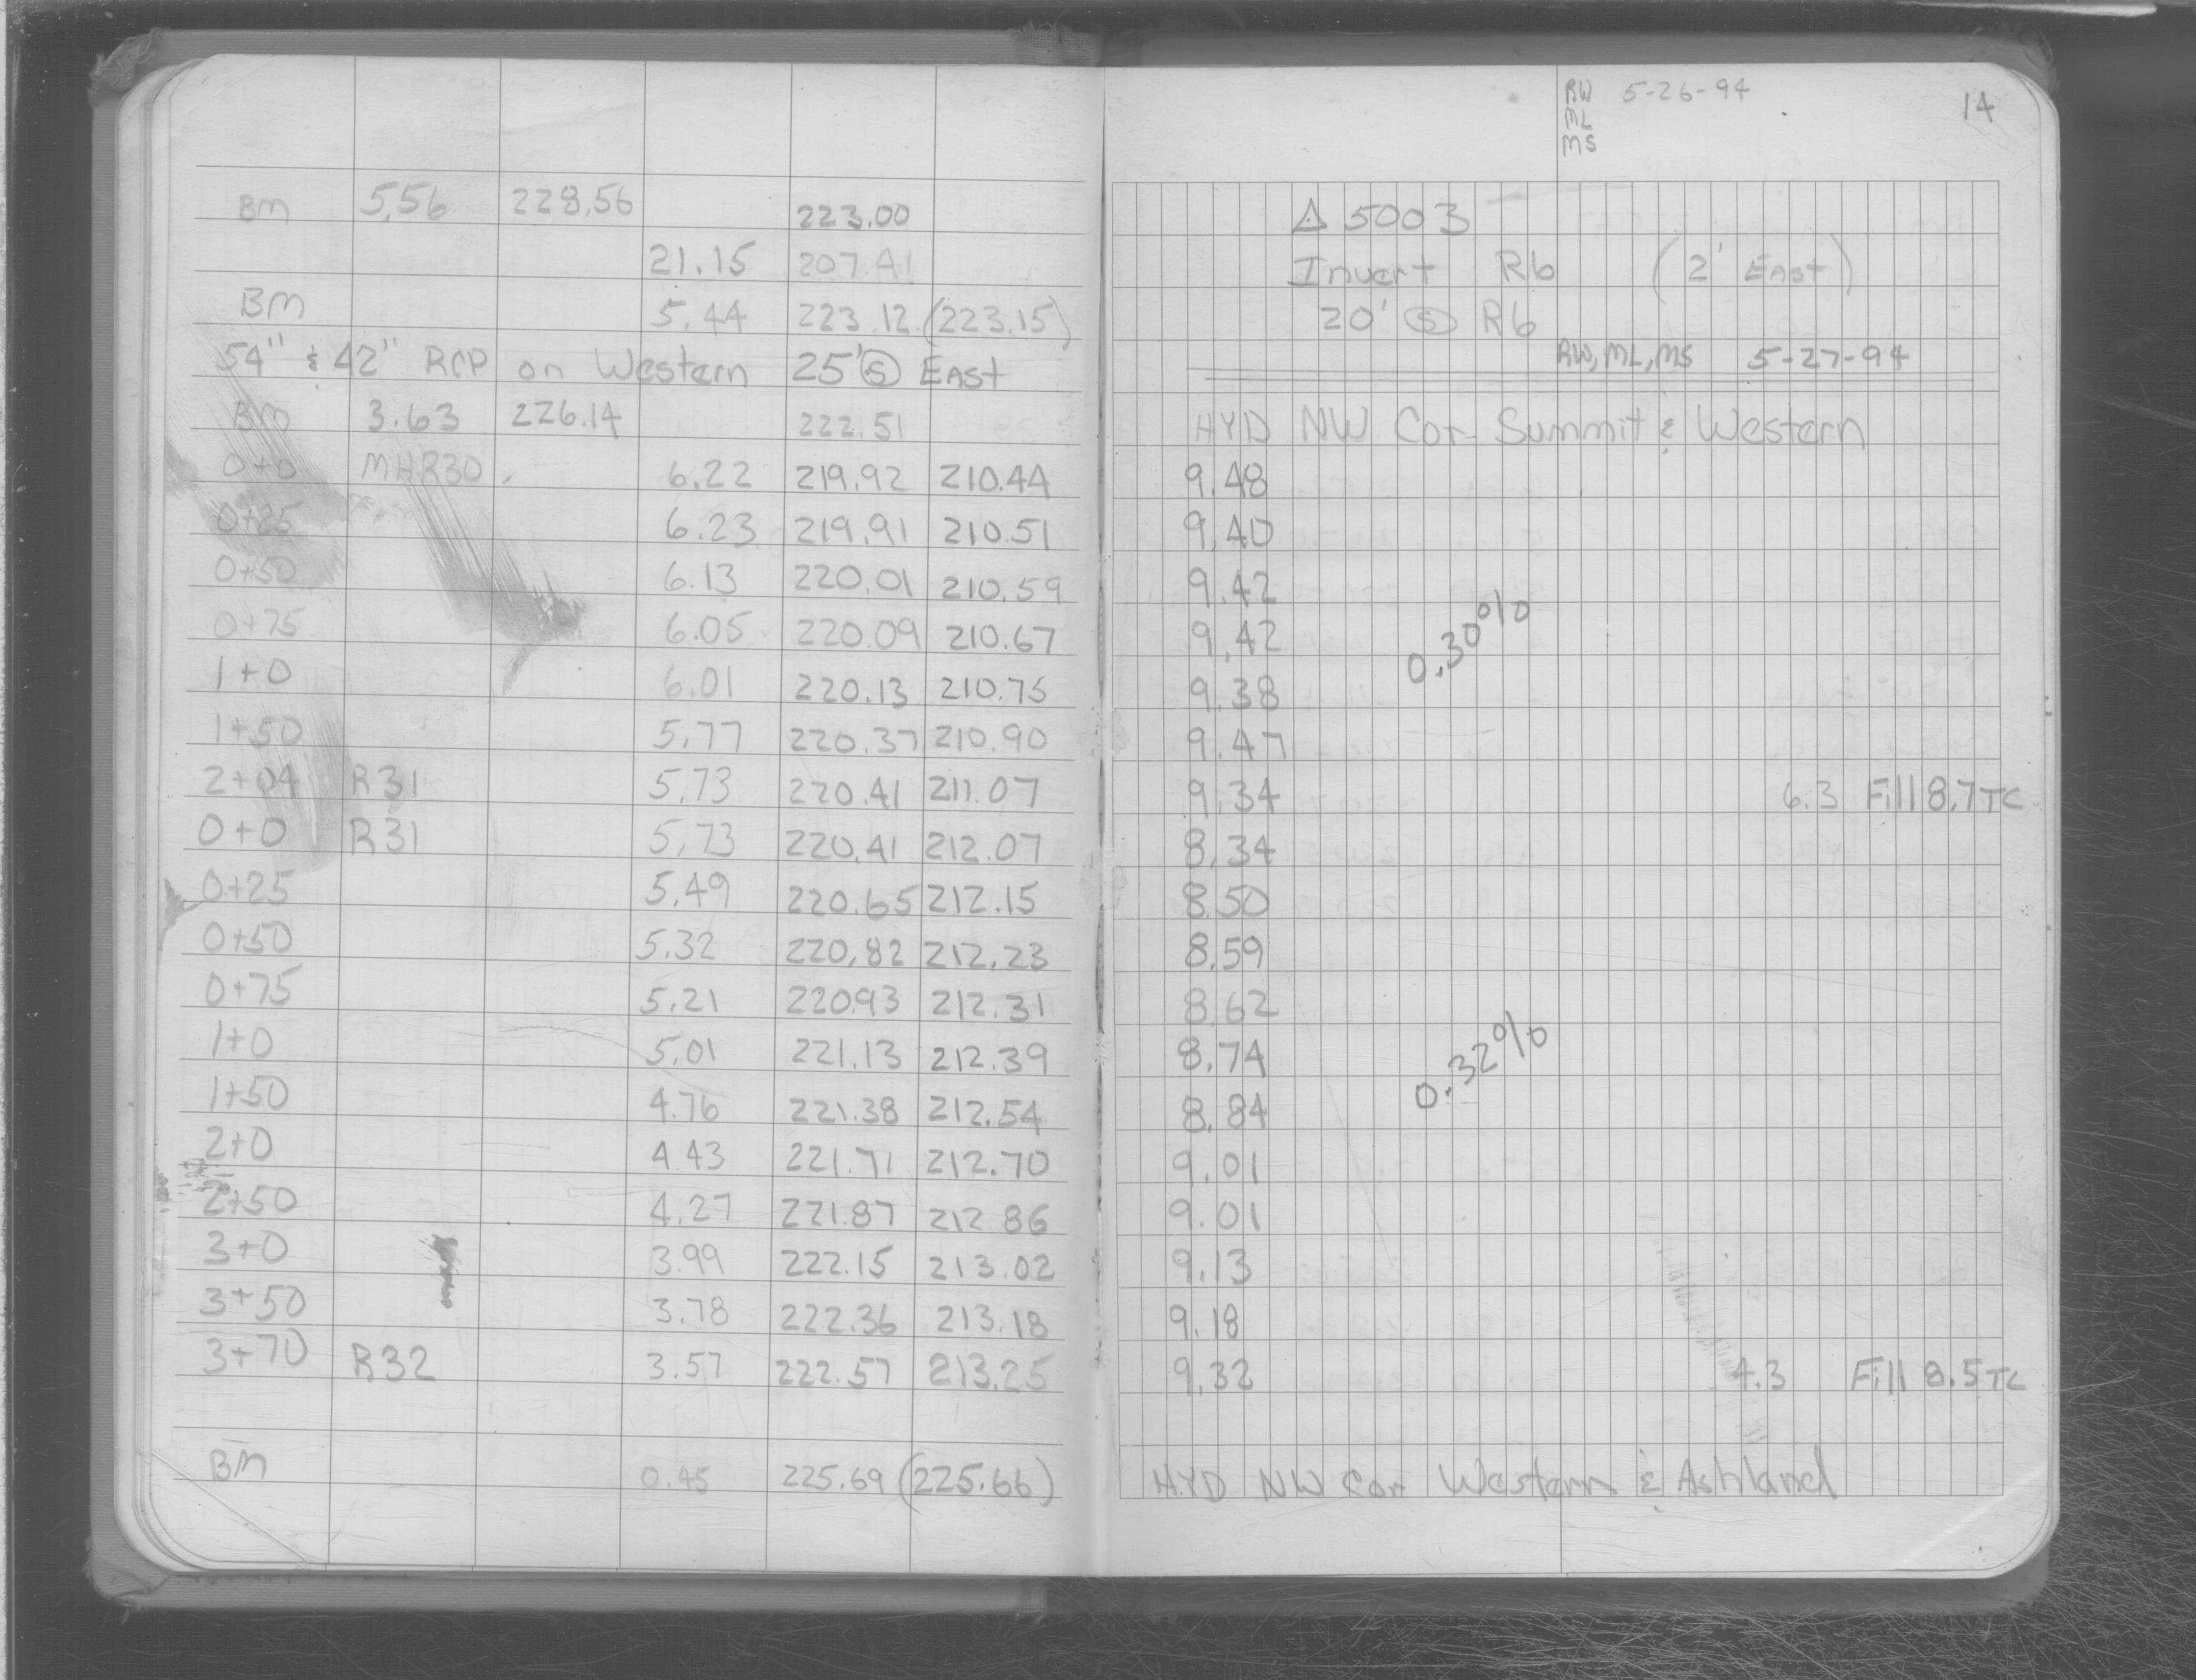 RW 5-26-94 14
ML
MS
BM 5.56 228.56 223.00 △ 5003
21.15 207.41 Invert R6 (2' East)
BM 5.44 223.12 (223.15) 20' Ⓢ R6
54" & 42" RCP on Western 25' Ⓢ East RW, ML, MS 5-27-94
BM 3.63 226.14 222.51 HYD NW Cor Summit & Western
0+0 MHR30 6.22 219.92 210.44 9.48
0+25 6.23 219.91 210.51 9.40
0+50 6.13 220.01 210.59 9.42
0+75 6.05 220.09 210.67 9.42 0.30%
1+0 6.01 220.13 210.75 9.38
1+50 5.77 220.37 210.90 9.47
2+04 R31 5.73 220.41 211.07 9.34 6.3 Fill 8.7 TC
0+0 R31 5.73 220.41 212.07 8.34
0+25 5.49 220.65 212.15 8.50
0+50 5.32 220.82 212.23 8.59
0+75 5.21 220.93 212.31 8.62
1+0 5.01 221.13 212.39 8.74 0.32%
1+50 4.76 221.38 212.54 8.84
2+0 4.43 221.71 212.70 9.01
2+50 4.27 221.87 212.86 9.01
3+0 3.99 222.15 213.02 9.13
3+50 3.78 222.36 213.18 9.18
3+70 R32 3.57 222.57 213.25 9.32 4.3 Fill 8.5 TC
BM 0.45 225.69 (225.66) HYD NW Cor Western & Ashland